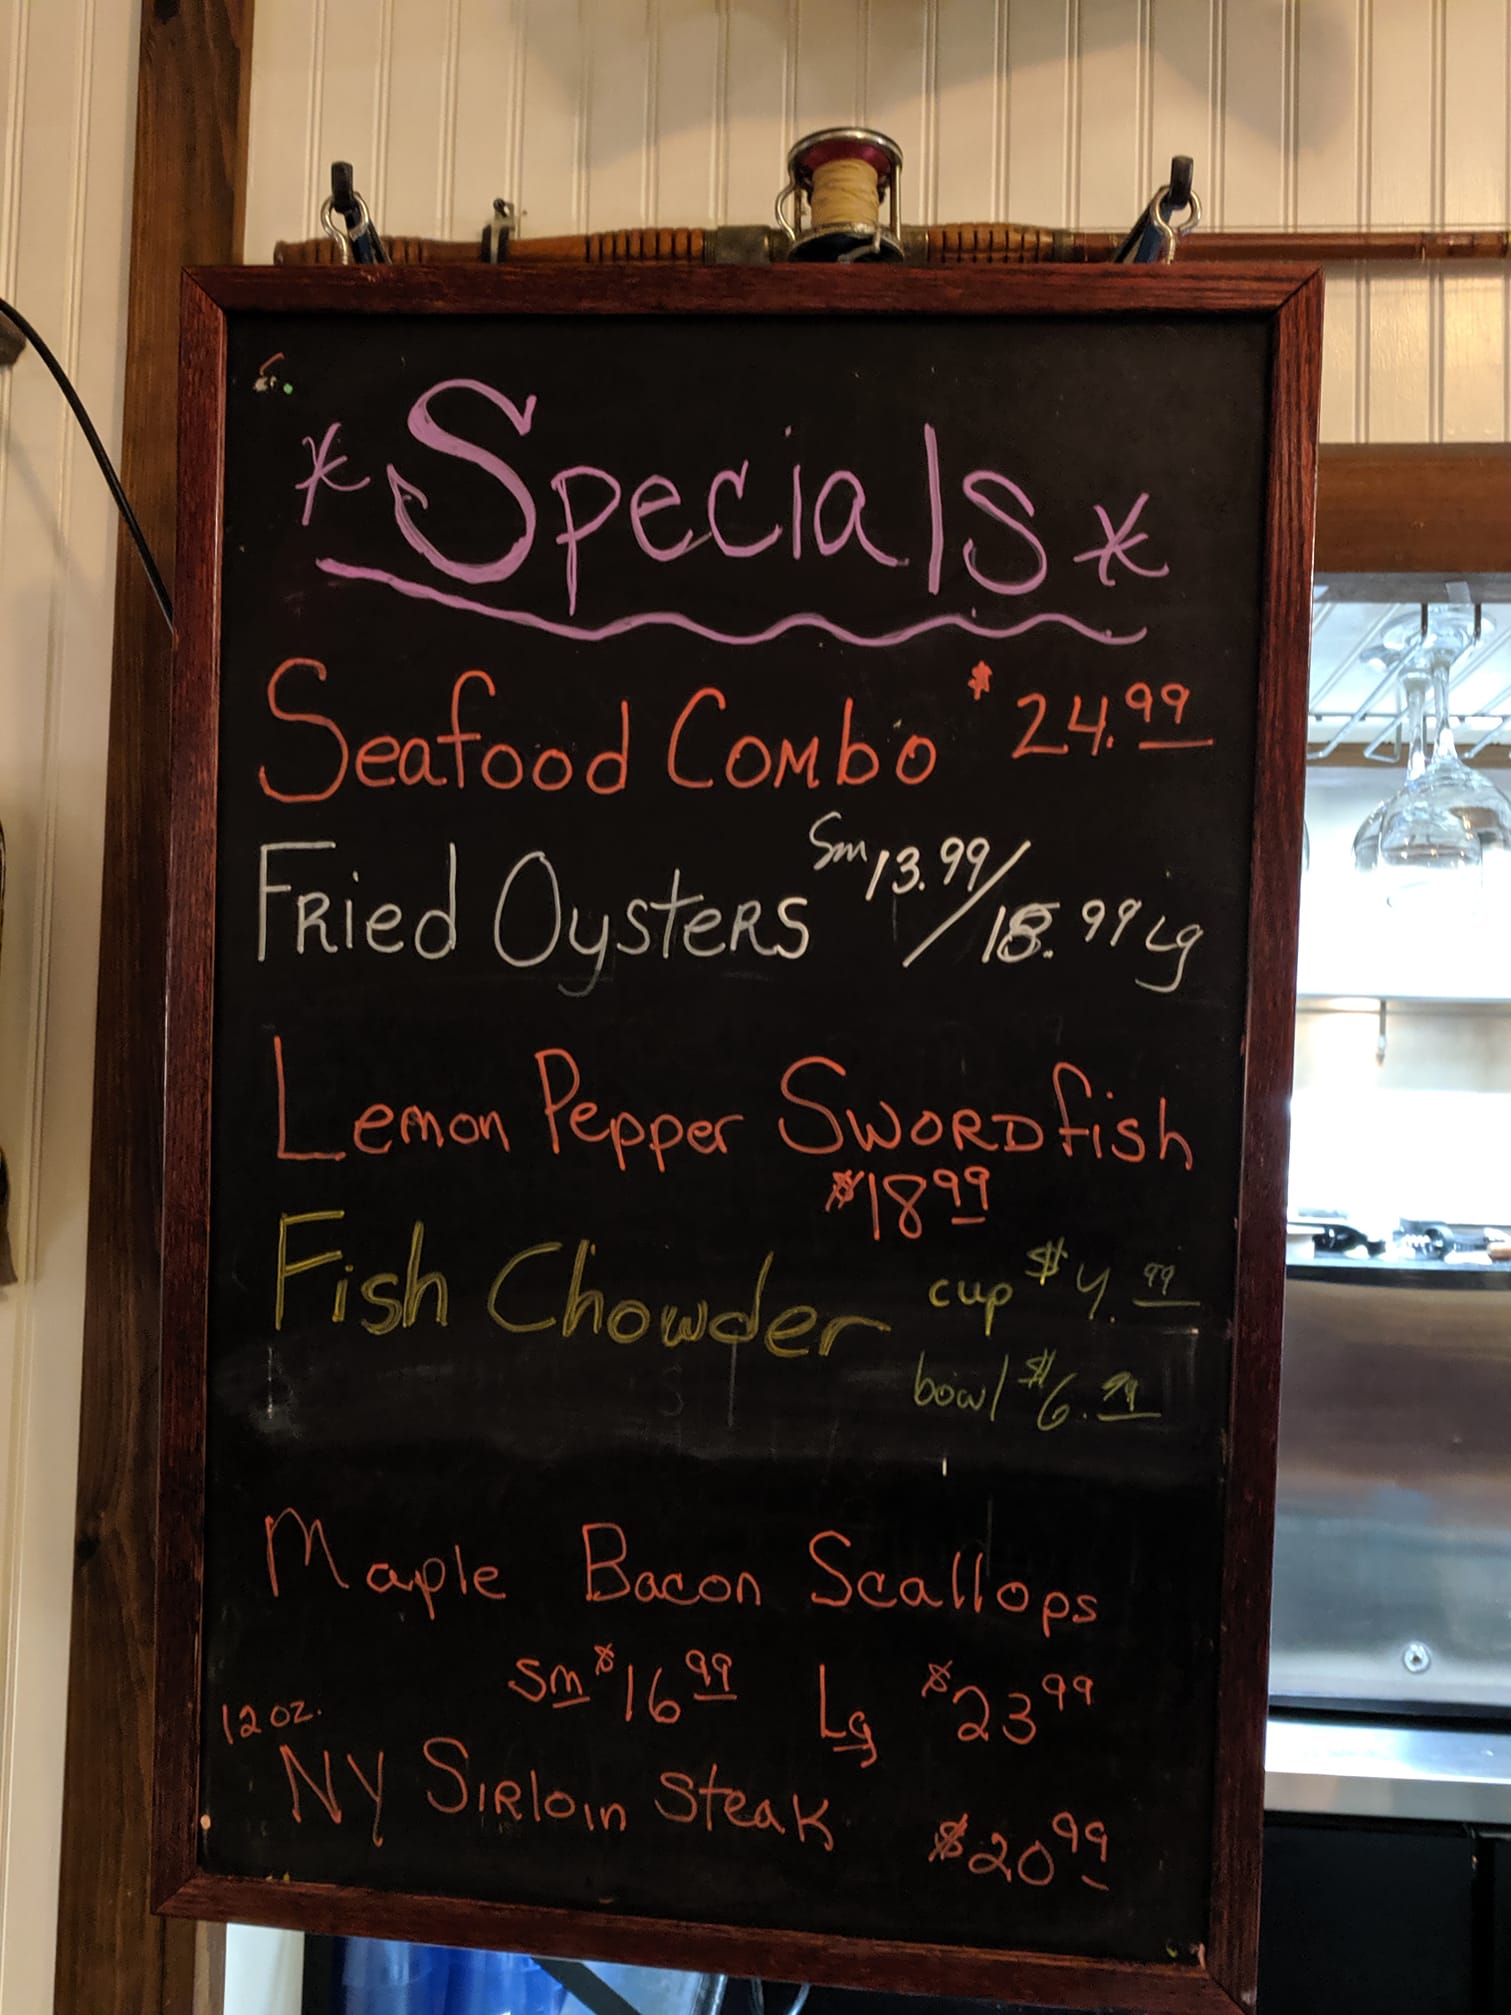 *Specials*
Seafood Combo $24.99
Fried Oysters Sm 13.99/18.99 Lg
Lemon Pepper Swordfish
$18 99
Fish Chowder cup $4.99
bowl $6.99
Maple Bacon Scallops
Sm $16 99 Lg $23 99
12 oz.
NY Sirloin Steak $20 99